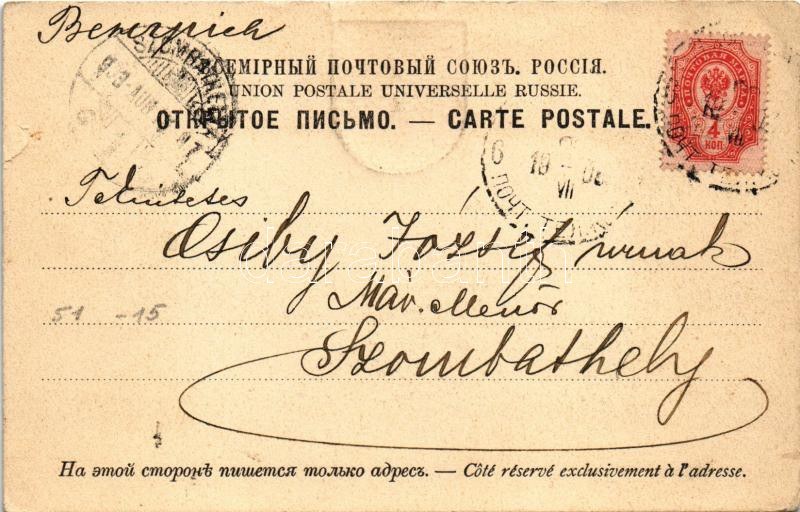 Венгрія
ВСЕМІРНЫЙ ПОЧТОВЫЙ СОЮЗЪ. РОССІЯ.
UNION POSTALE UNIVERSELLE RUSSIE.
ОТКРЫТОЕ ПИСЬМО. — CARTE POSTALE.
ПОЧТОВАЯ МАРКА
4
КОП.
SZOMBATHELY
Tekintetes
Csiby József úrnak
Máv. Mérnök
Szombathely
51 -15
На этой сторонѣ пишется только адресъ. — Côté réservé exclusivement à l'adresse.